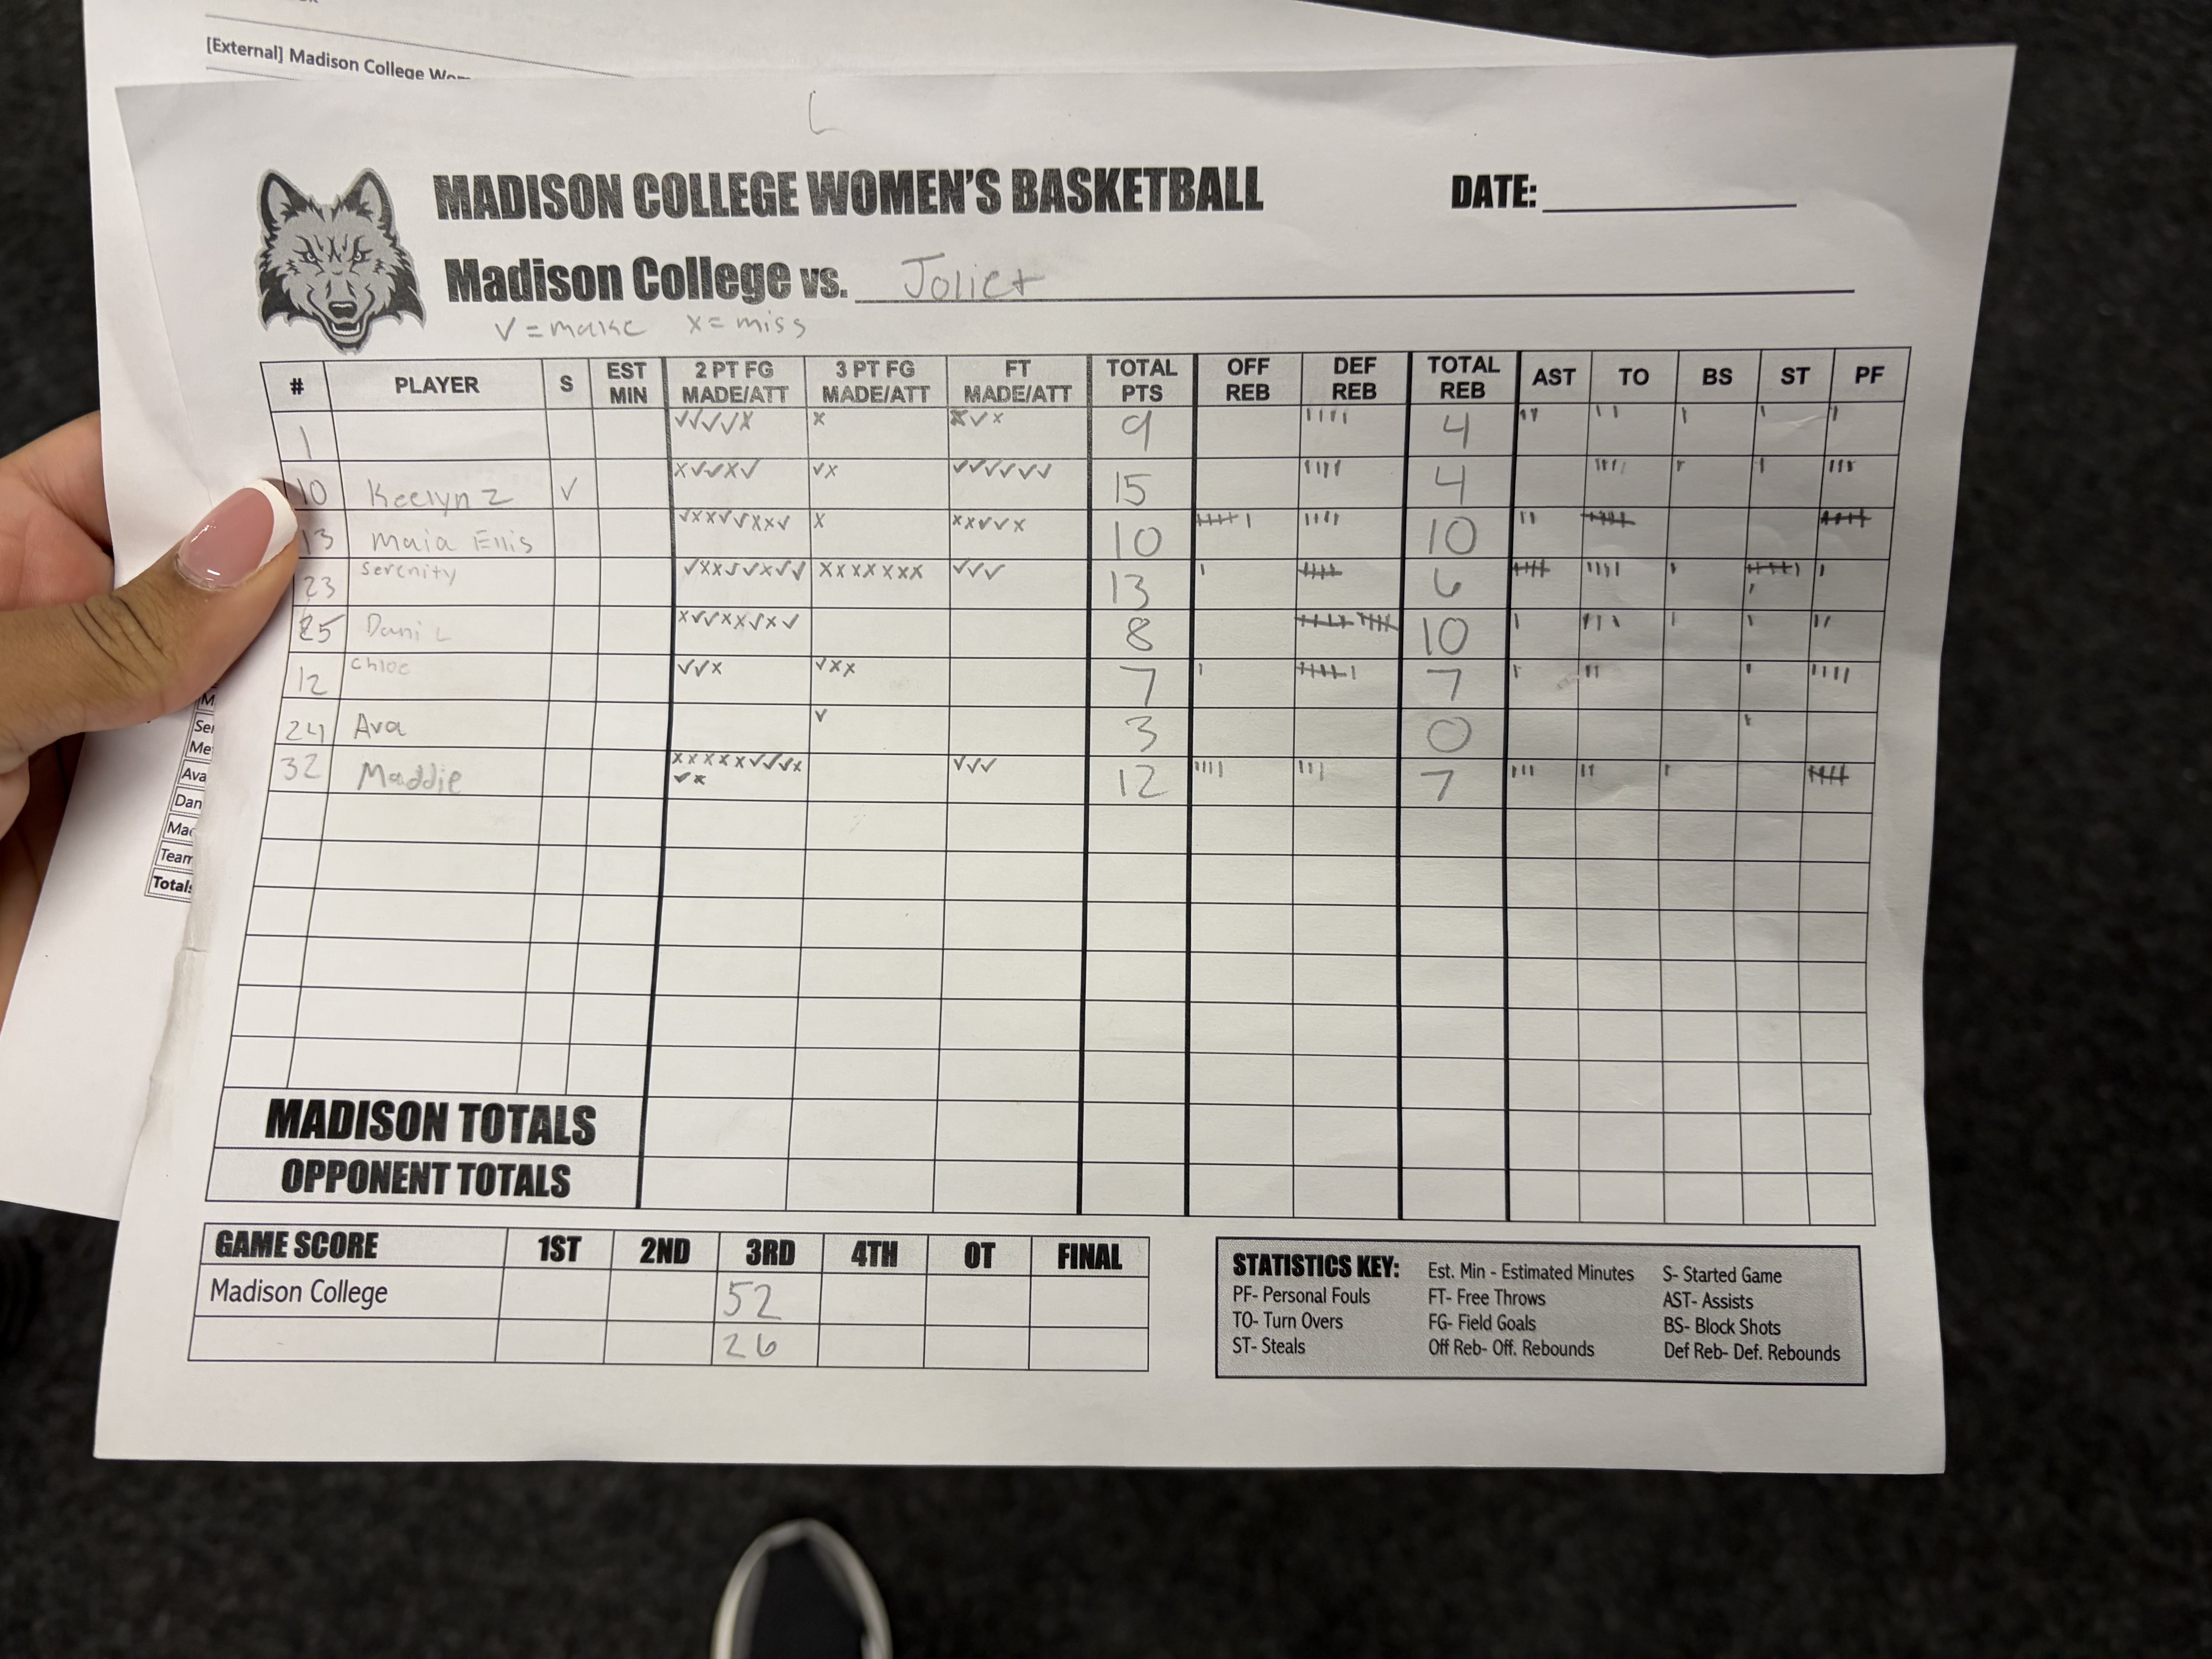 [External] Madison College Wom
MADISON COLLEGE WOMEN'S BASKETBALL DATE:
Madison College vs. Joliet
✓ = make x = miss
# PLAYER S EST MIN 2 PT FG MADE/ATT 3 PT FG MADE/ATT FT MADE/ATT TOTAL PTS OFF REB DEF REB TOTAL REB AST TO BS ST PF
1 ✓✓✓✓x x x✓x 9 |||| 4 || || | | |
10 Keelyn Z ✓ x✓✓x✓ ✓x ✓✓✓✓✓✓ 15 |||| 4 |||| | | |||
13 Maia Ellis ✓xx✓✓xx✓ x xx✓✓x 10 |||| | |||| 10 || |||| ||||
23 Serenity ✓xx✓✓x✓✓ xxxxxxx ✓✓✓ 13 | |||| 6 |||| |||| | |||| | | |
25 Dani L x✓✓xx✓x✓ 8 |||| |||| 10 | ||| | | ||
12 Chloe ✓✓x ✓xx 7 | |||| | 7 | || | ||||
24 Ava ✓ 3 0 |
32 Maddie xxxxx✓✓✓✓x 12 |||| ||| 7 ||| || | ||||
✓x ✓✓✓
M
Ser
Me
Ava
Dan
Mad
Team
Totals
MADISON TOTALS
OPPONENT TOTALS
GAME SCORE 1ST 2ND 3RD 4TH OT FINAL
Madison College 52
26
STATISTICS KEY: Est. Min - Estimated Minutes S- Started Game
PF- Personal Fouls FT- Free Throws AST- Assists
TO- Turn Overs FG- Field Goals BS- Block Shots
ST- Steals Off Reb- Off. Rebounds Def Reb- Def. Rebounds